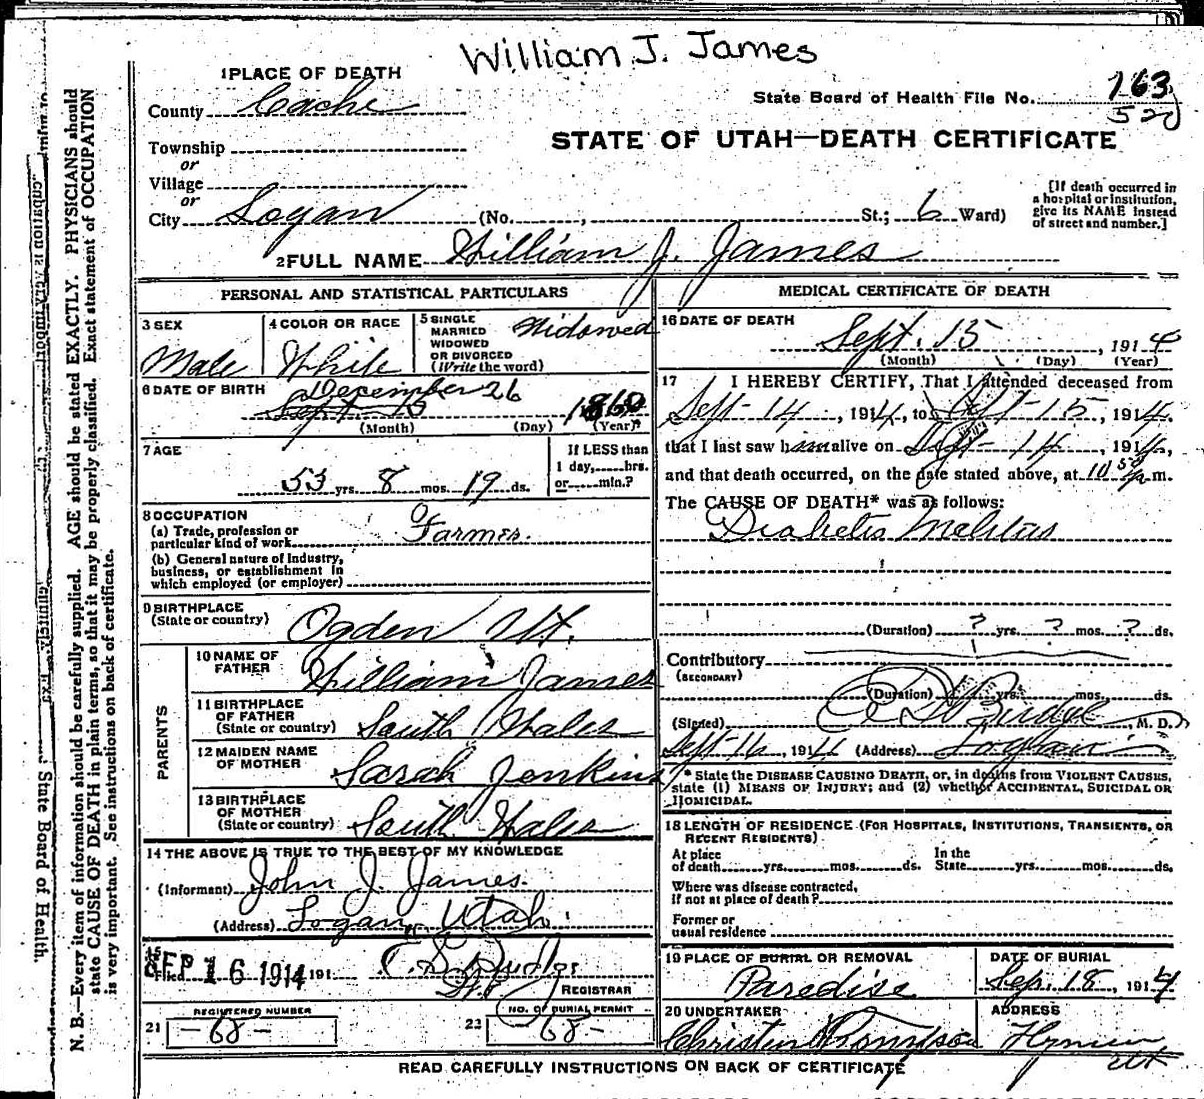 William J. James
1 PLACE OF DEATH
County Cache
State Board of Health File No. 163
520
STATE OF UTAH—DEATH CERTIFICATE
Township
or
Village
or
City Logan (No. , St.; 6 Ward)
[If death occurred in a hospital or institution, give its NAME instead of street and number.]
2 FULL NAME William J. James
PERSONAL AND STATISTICAL PARTICULARS
3 SEX
Male
4 COLOR OR RACE
White
5 SINGLE MARRIED WIDOWED OR DIVORCED (Write the word)
Widowed
6 DATE OF BIRTH
December 26
Sept 15
1860
(Month) (Day) (Year)
7 AGE
53 yrs. 8 mos. 19 ds.
If LESS than 1 day, hrs. or min.?
8 OCCUPATION
(a) Trade, profession or particular kind of work
Farmer.
(b) General nature of industry, business, or establishment in which employed (or employer)
9 BIRTHPLACE (State or country)
Ogden Ut.
PARENTS
10 NAME OF FATHER
William James
11 BIRTHPLACE OF FATHER (State or country)
South Wales
12 MAIDEN NAME OF MOTHER
Sarah Jenkins
13 BIRTHPLACE OF MOTHER (State or country)
South Wales
14 THE ABOVE IS TRUE TO THE BEST OF MY KNOWLEDGE
(Informant) John J. James.
(Address) Logan, Utah.
15
Filed SEP 16 1914 191
REGISTRAR
REGISTERED NUMBER
21 -68-
NO. OF BURIAL PERMIT
22 68-
MEDICAL CERTIFICATE OF DEATH
16 DATE OF DEATH
Sept. 15, 1914
(Month) (Day) (Year)
17 I HEREBY CERTIFY, That I attended deceased from
Sept-14, 1914, to Sept-15, 1914.
that I last saw him alive on Sept-14, 1914,
and that death occurred, on the date stated above, at 10 50 m.
The CAUSE OF DEATH* was as follows:
Diabetis Melitas
(Duration) ? yrs. ? mos. ? ds.
Contributory
(SECONDARY)
(Duration) yrs. mos. ds.
(Signed) M. D.
Sept-16, 1914 (Address) Logan
* State the DISEASE CAUSING DEATH, or, in deaths from VIOLENT CAUSES, state (1) MEANS OF INJURY; and (2) whether ACCIDENTAL, SUICIDAL OR HOMICIDAL.
18 LENGTH OF RESIDENCE (FOR HOSPITALS, INSTITUTIONS, TRANSIENTS, OR RECENT RESIDENTS)
At place of death yrs. mos. ds. In the State yrs. mos. ds.
Where was disease contracted, if not at place of death?
Former or usual residence
19 PLACE OF BURIAL OR REMOVAL
Paradise
DATE OF BURIAL
Sep. 18, 1914
20 UNDERTAKER
ADDRESS
Hyrum
Ut
READ CAREFULLY INSTRUCTIONS ON BACK OF CERTIFICATE
N. B.—Every item of information should be carefully supplied. AGE should be stated EXACTLY. PHYSICIANS should
state CAUSE OF DEATH in plain terms, so that it may be properly classified. Exact statement of OCCUPATION
is very important. See instructions on back of certificate.
State Board of Health.